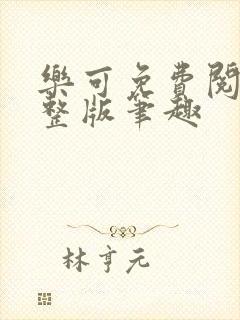 樂可免費閱
整版筆趣
林亨元